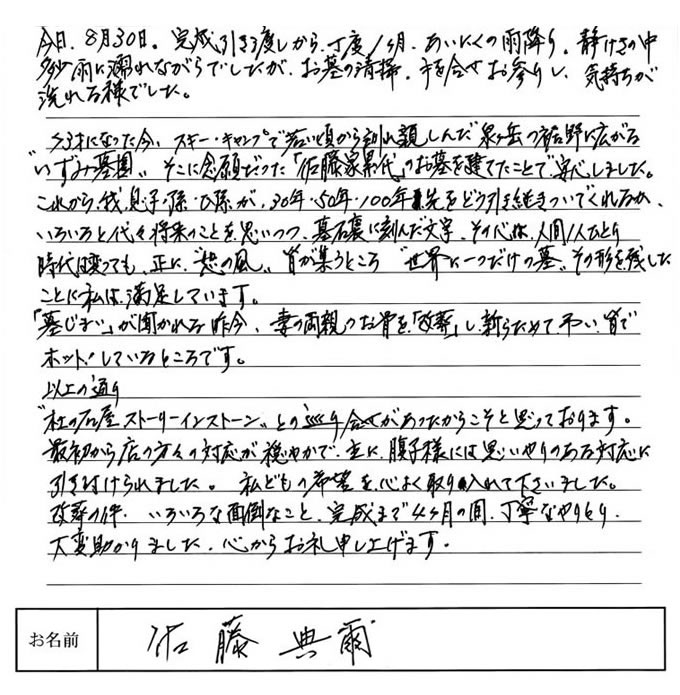 今日、8月30日。完成引き渡しから、丁度1ヶ月、あいにくの雨降り。静けさの中
多少雨に濡れながらでしたが、お墓の清掃。手を合せお参りし、気持ちが
洗れる様でした。
53才になった今、スキー・キャンプで若い頃から訓れ親しんだ泉ヶ岳の裾野に広がる
"いずみ墓園"そこに念願だった「佐藤家累代」のお墓を建てたことで安心しました。
これから、我、息子・孫・ひ孫が、30年・50年・100年先をどう引き継きついでくれるか、
いろいろと代々将来のことを思いつつ、墓石裏に刻んだ文字、その心は、人間1人ひとり
時代は変っても、正に、"憩の風"皆が集うところ"世界に一つだけの墓"その形を残した
ことに私は満足しています。
「墓じまい」が聞かれる昨今、妻の両親のお骨を、「改葬」し、新らためて弔い、皆で
ホットしているところです。
以上の通り
"杜の石屋ストーリーインストーン"との巡り合せがあったからこそと思っております。
最初から店の方々の対応が穏やかで、主に、様には思いやりのある対応に
引き付けられました。私どもの希望を、心よく取り入れて下さいました。
改葬の件、いろいろな面倒なこと、完成まで4ヶ月の間、丁寧なやりとり、
大変助かりました、心からお礼申し上げます。
お名前 佐藤典爾